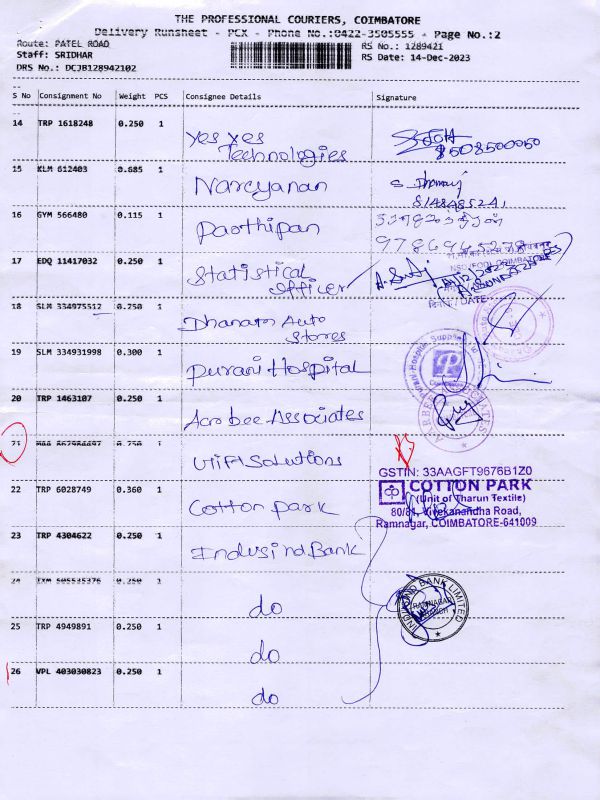 THE PROFESSIONAL COURIERS, COIMBATORE
Delivery Runsheet - PCX - Phone No.:0422-3505555 - Page No.:2
Route: PATEL ROAD RS No.: 1289421
Staff: SRIDHAR RS Date: 14-Dec-2023
DRS No.: DCJB128942102
S No Consignment No Weight PCS Consignee Details Signature
14 TRP 1618248 0.250 1
Yes Yes
Technologies 8508500050
15 KLM 612403 0.685 1
Narayanan
16 GYM 566480 0.115 1
Parthipan
17 EDQ 11417032 0.250 1
Statistical
Officer
18 SLM 334975512 0.250 1
Auto
Stores
19 SLM 334931998 0.300 1
Purani Hospital
20 TRP 1463107 0.250 1
Aarbee Associates
21 0.250 1
Solutions
GSTIN: 33AAGFT9676B1Z0
22 TRP 6028749 0.360 1
COTTON PARK
Cotton Park
(Unit of Tharun Textile)
80/81, Vivekanandha Road,
Ramnagar, COIMBATORE-641009
23 TRP 4304622 0.250 1
Indusind Bank
24 0.250 1
do
25 TRP 4949891 0.250 1
do
26 VPL 403030823 0.250 1
do